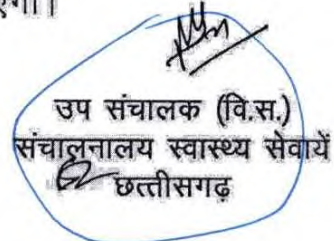 उप संचालक (वि.स.)
संचालनालय स्वास्थ्य सेवायें
छत्तीसगढ़